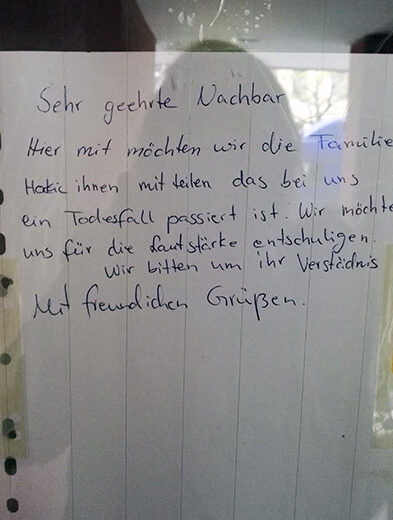 Sehr geehrte Nachbar
Hier mit möchten wir die Familie
Hakic ihnen mit teilen das bei uns
ein Todesfall passiert ist. Wir möchte
uns für die Lautstärke entschuligen.
Wir bitten um ihr Verstädnis
Mit freundlichen Grüßen.